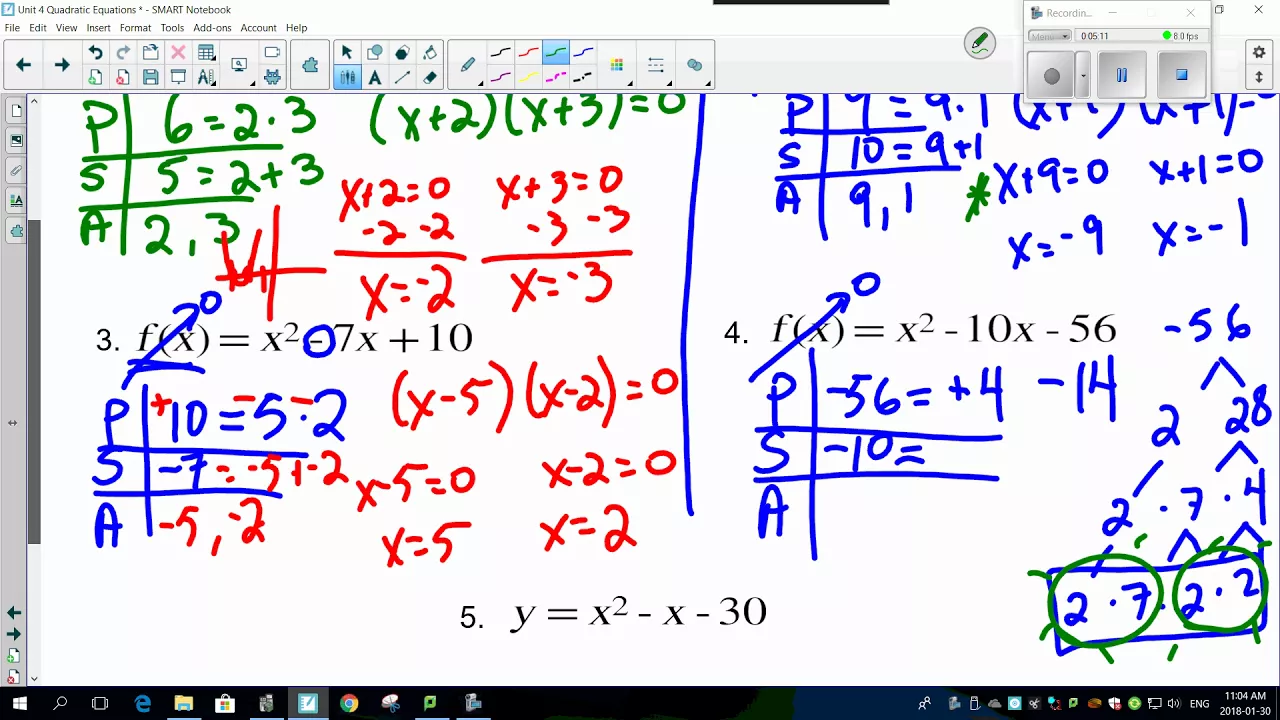 Unit 4 Quadratic Equations * - SMART Notebook
File Edit View Insert Format Tools Add-ons Account Help
Recordin...
Menu
0:05:11
8.0 fps
P 6 = 2 · 3 (x+2)(x+3)=0
S 5 = 2 + 3
A 2, 3
x+2=0 x+3=0
-2 -2 -3 -3
x=-2 x=-3
P 9 = 9 · 1
S 10 = 9+1
A 9, 1
* x+9=0 x+1=0
x=-9 x=-1
0
3. f(x) = x² - 7x + 10
P +10 = -5 · -2 (x-5)(x-2)=0
S -7 = -5 + -2
A -5, -2
x-5=0 x-2=0
x=5 x=2
0
4. f(x) = x² - 10x - 56
P -56 = +4 -14
S -10 =
A
-56
2 28
2 · 7 · 4
2 · 7 · 2 · 2
5. y = x² - x - 30
ENG
11:04 AM
2018-01-30